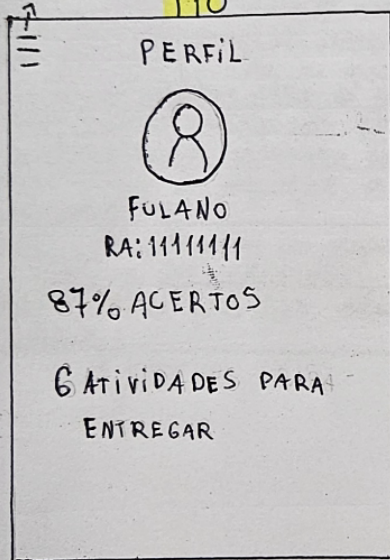 PERFIL
FULANO
RA: 11111111
87% ACERTOS
6 ATIVIDADES PARA
ENTREGAR